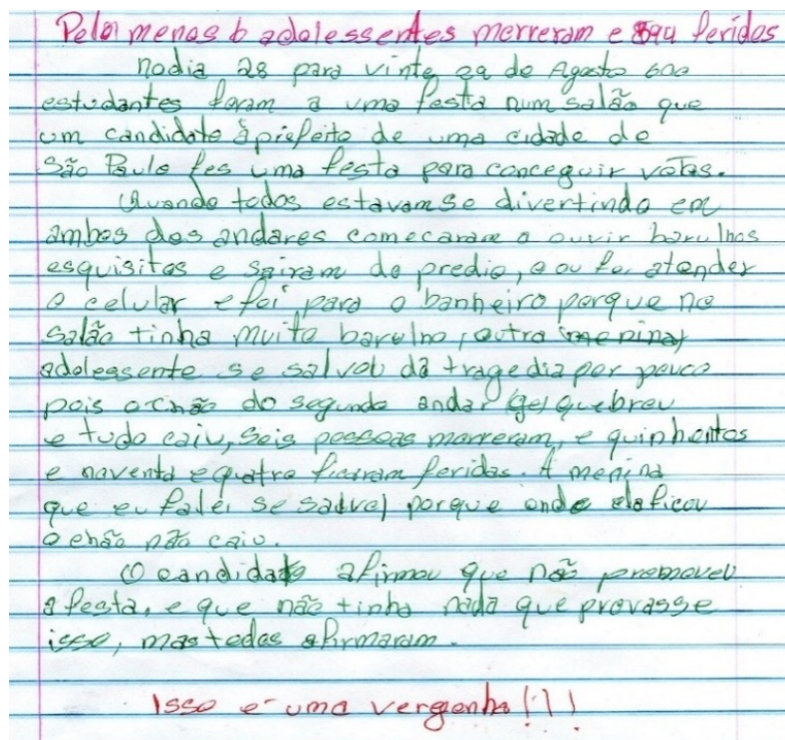 Pelo menos 6 adolessentes morreram e 594 feridos
nodia 28 para vinte 29 de Agosto 600
estudantes foram a uma festa num salão que
um candidato àprefeito de uma cidade de
São Paulo fes uma festa para conceguir votos.
Quando todos estavamse divertindo em
ambos dos andares comecaram a ouvir barulhos
esquisitos e sairam do predio, atender
o celular e foi para o banheiro porque no
salão tinha muito barulho, outra (menina)
adolessente se salvou da tragedia por pouco
pois o chão do segundo andar (se) quebrou
e tudo caiu, seis pessoas morreram, e quinhentos
e noventa equatro ficaram feridas. A menina
que eu falei se salvol porque onde elaficou
o chão não caio.
O candidato afirmou que não promoveu
a festa, e que não tinha nada que provasse
isso, mas todos afirmaram.
Isso é uma vergonha!!!